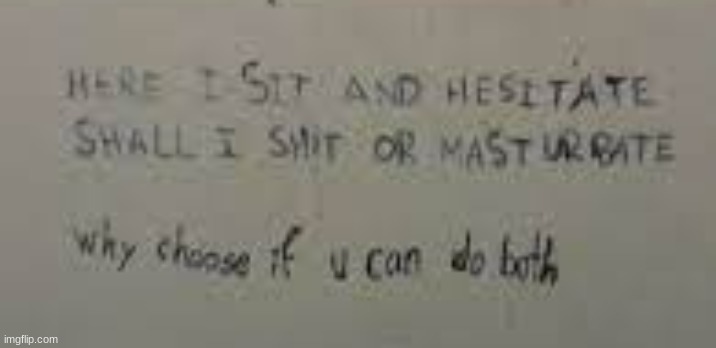 HERE I SIT AND HESITATE
SHALL I SHIT OR MASTURBATE
why choose if u can do both
imgflip.com